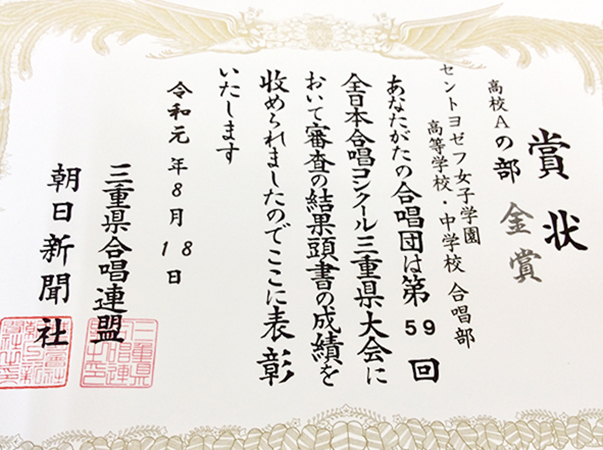 賞状
高校Aの部 金賞
セントヨゼフ女子学園
高等学校・中学校 合唱部
あなたがたの合唱団は第59回
全日本合唱コンクール三重県大会に
おいて審査の結果頭書の成績を
収められましたのでここに表彰
いたします
令和元年8月18日
三重県合唱連盟
朝日新聞社